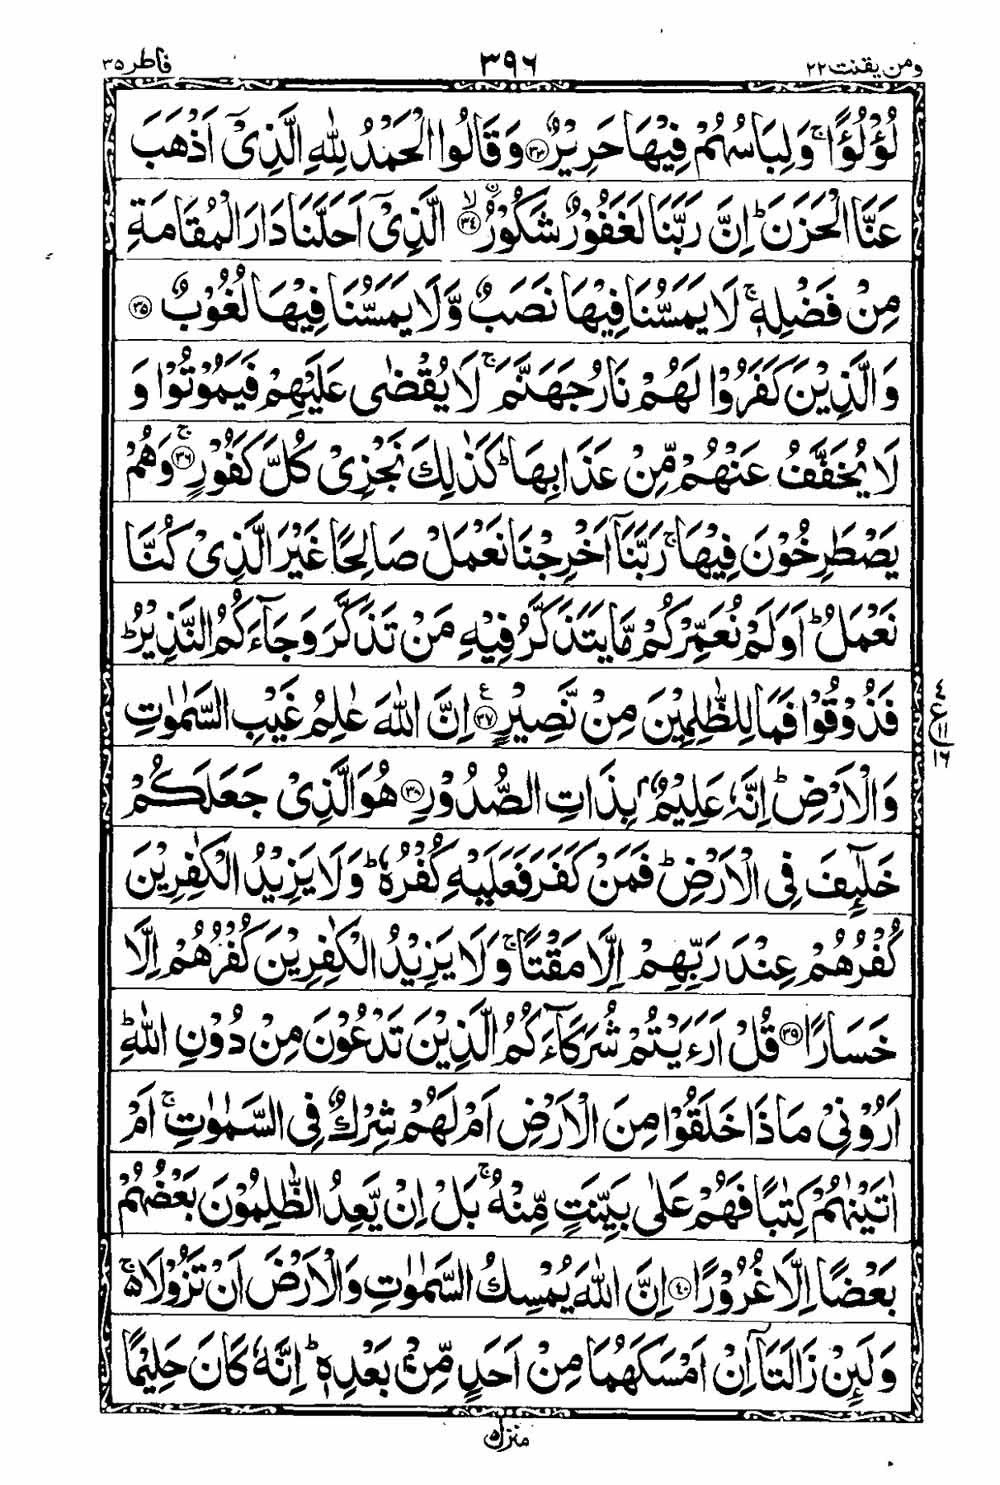 ومن يقنت ٢٢ ٣٩٦ فاطر ٣٥
لُؤْلُؤًا ۚ وَلِبَاسُهُمْ فِيْهَا حَرِيْرٌ ﴿۳۳﴾ وَقَالُوا الْحَمْدُ لِلّٰهِ الَّذِيْٓ اَذْهَبَ
عَنَّا الْحَزَنَ ؕ اِنَّ رَبَّنَا لَغَفُوْرٌ شَكُوْرُ ۙ﴿۳۴﴾ الَّذِيْٓ اَحَلَّنَا دَارَ الْمُقَامَةِ
مِنْ فَضْلِهٖ ۚ لَا يَمَسُّنَا فِيْهَا نَصَبٌ وَّلَا يَمَسُّنَا فِيْهَا لُغُوْبٌ ﴿۳۵﴾
وَالَّذِيْنَ كَفَرُوْا لَهُمْ نَارُ جَهَنَّمَ ۚ لَا يُقْضٰى عَلَيْهِمْ فَيَمُوْتُوْا وَ
لَا يُخَفَّفُ عَنْهُمْ مِّنْ عَذَابِهَا ؕ كَذٰلِكَ نَجْزِيْ كُلَّ كَفُوْرٍ ۚ﴿۳۶﴾ وَهُمْ
يَصْطَرِخُوْنَ فِيْهَا ۚ رَبَّنَآ اَخْرِجْنَا نَعْمَلْ صَالِحًا غَيْرَ الَّذِيْ كُنَّا
نَعْمَلُ ؕ اَوَلَمْ نُعَمِّرْكُمْ مَّا يَتَذَكَّرُ فِيْهِ مَنْ تَذَكَّرَ وَجَآءَكُمُ النَّذِيْرُ ؕ
فَذُوْقُوْا فَمَا لِلظّٰلِمِيْنَ مِنْ نَّصِيْرٍ ﴿۳۷﴾ ع اِنَّ اللّٰهَ عٰلِمُ غَيْبِ السَّمٰوٰتِ
٤ ع ١١ ١٦
وَالْاَرْضِ ؕ اِنَّهٗ عَلِيْمٌۢ بِذَاتِ الصُّدُوْرِ ﴿۳۸﴾ هُوَ الَّذِيْ جَعَلَكُمْ
خَلٰٓئِفَ فِي الْاَرْضِ ؕ فَمَنْ كَفَرَ فَعَلَيْهِ كُفْرُهٗ ؕ وَلَا يَزِيْدُ الْكٰفِرِيْنَ
كُفْرُهُمْ عِنْدَ رَبِّهِمْ اِلَّا مَقْتًا ۚ وَلَا يَزِيْدُ الْكٰفِرِيْنَ كُفْرُهُمْ اِلَّا
خَسَارًا ﴿۳۹﴾ قُلْ اَرَءَيْتُمْ شُرَكَآءَكُمُ الَّذِيْنَ تَدْعُوْنَ مِنْ دُوْنِ اللّٰهِ ؕ
اَرُوْنِيْ مَاذَا خَلَقُوْا مِنَ الْاَرْضِ اَمْ لَهُمْ شِرْكٌ فِي السَّمٰوٰتِ ۚ اَمْ
اٰتَيْنٰهُمْ كِتٰبًا فَهُمْ عَلٰى بَيِّنَتٍ مِّنْهُ ۚ بَلْ اِنْ يَّعِدُ الظّٰلِمُوْنَ بَعْضُهُمْ
بَعْضًا اِلَّا غُرُوْرًا ﴿۴۰﴾ اِنَّ اللّٰهَ يُمْسِكُ السَّمٰوٰتِ وَالْاَرْضَ اَنْ تَزُوْلَا ۚ۵
وَلَئِنْ زَالَتَآ اِنْ اَمْسَكَهُمَا مِنْ اَحَدٍ مِّنْۢ بَعْدِهٖ ؕ اِنَّهٗ كَانَ حَلِيْمًا
منزل ٥